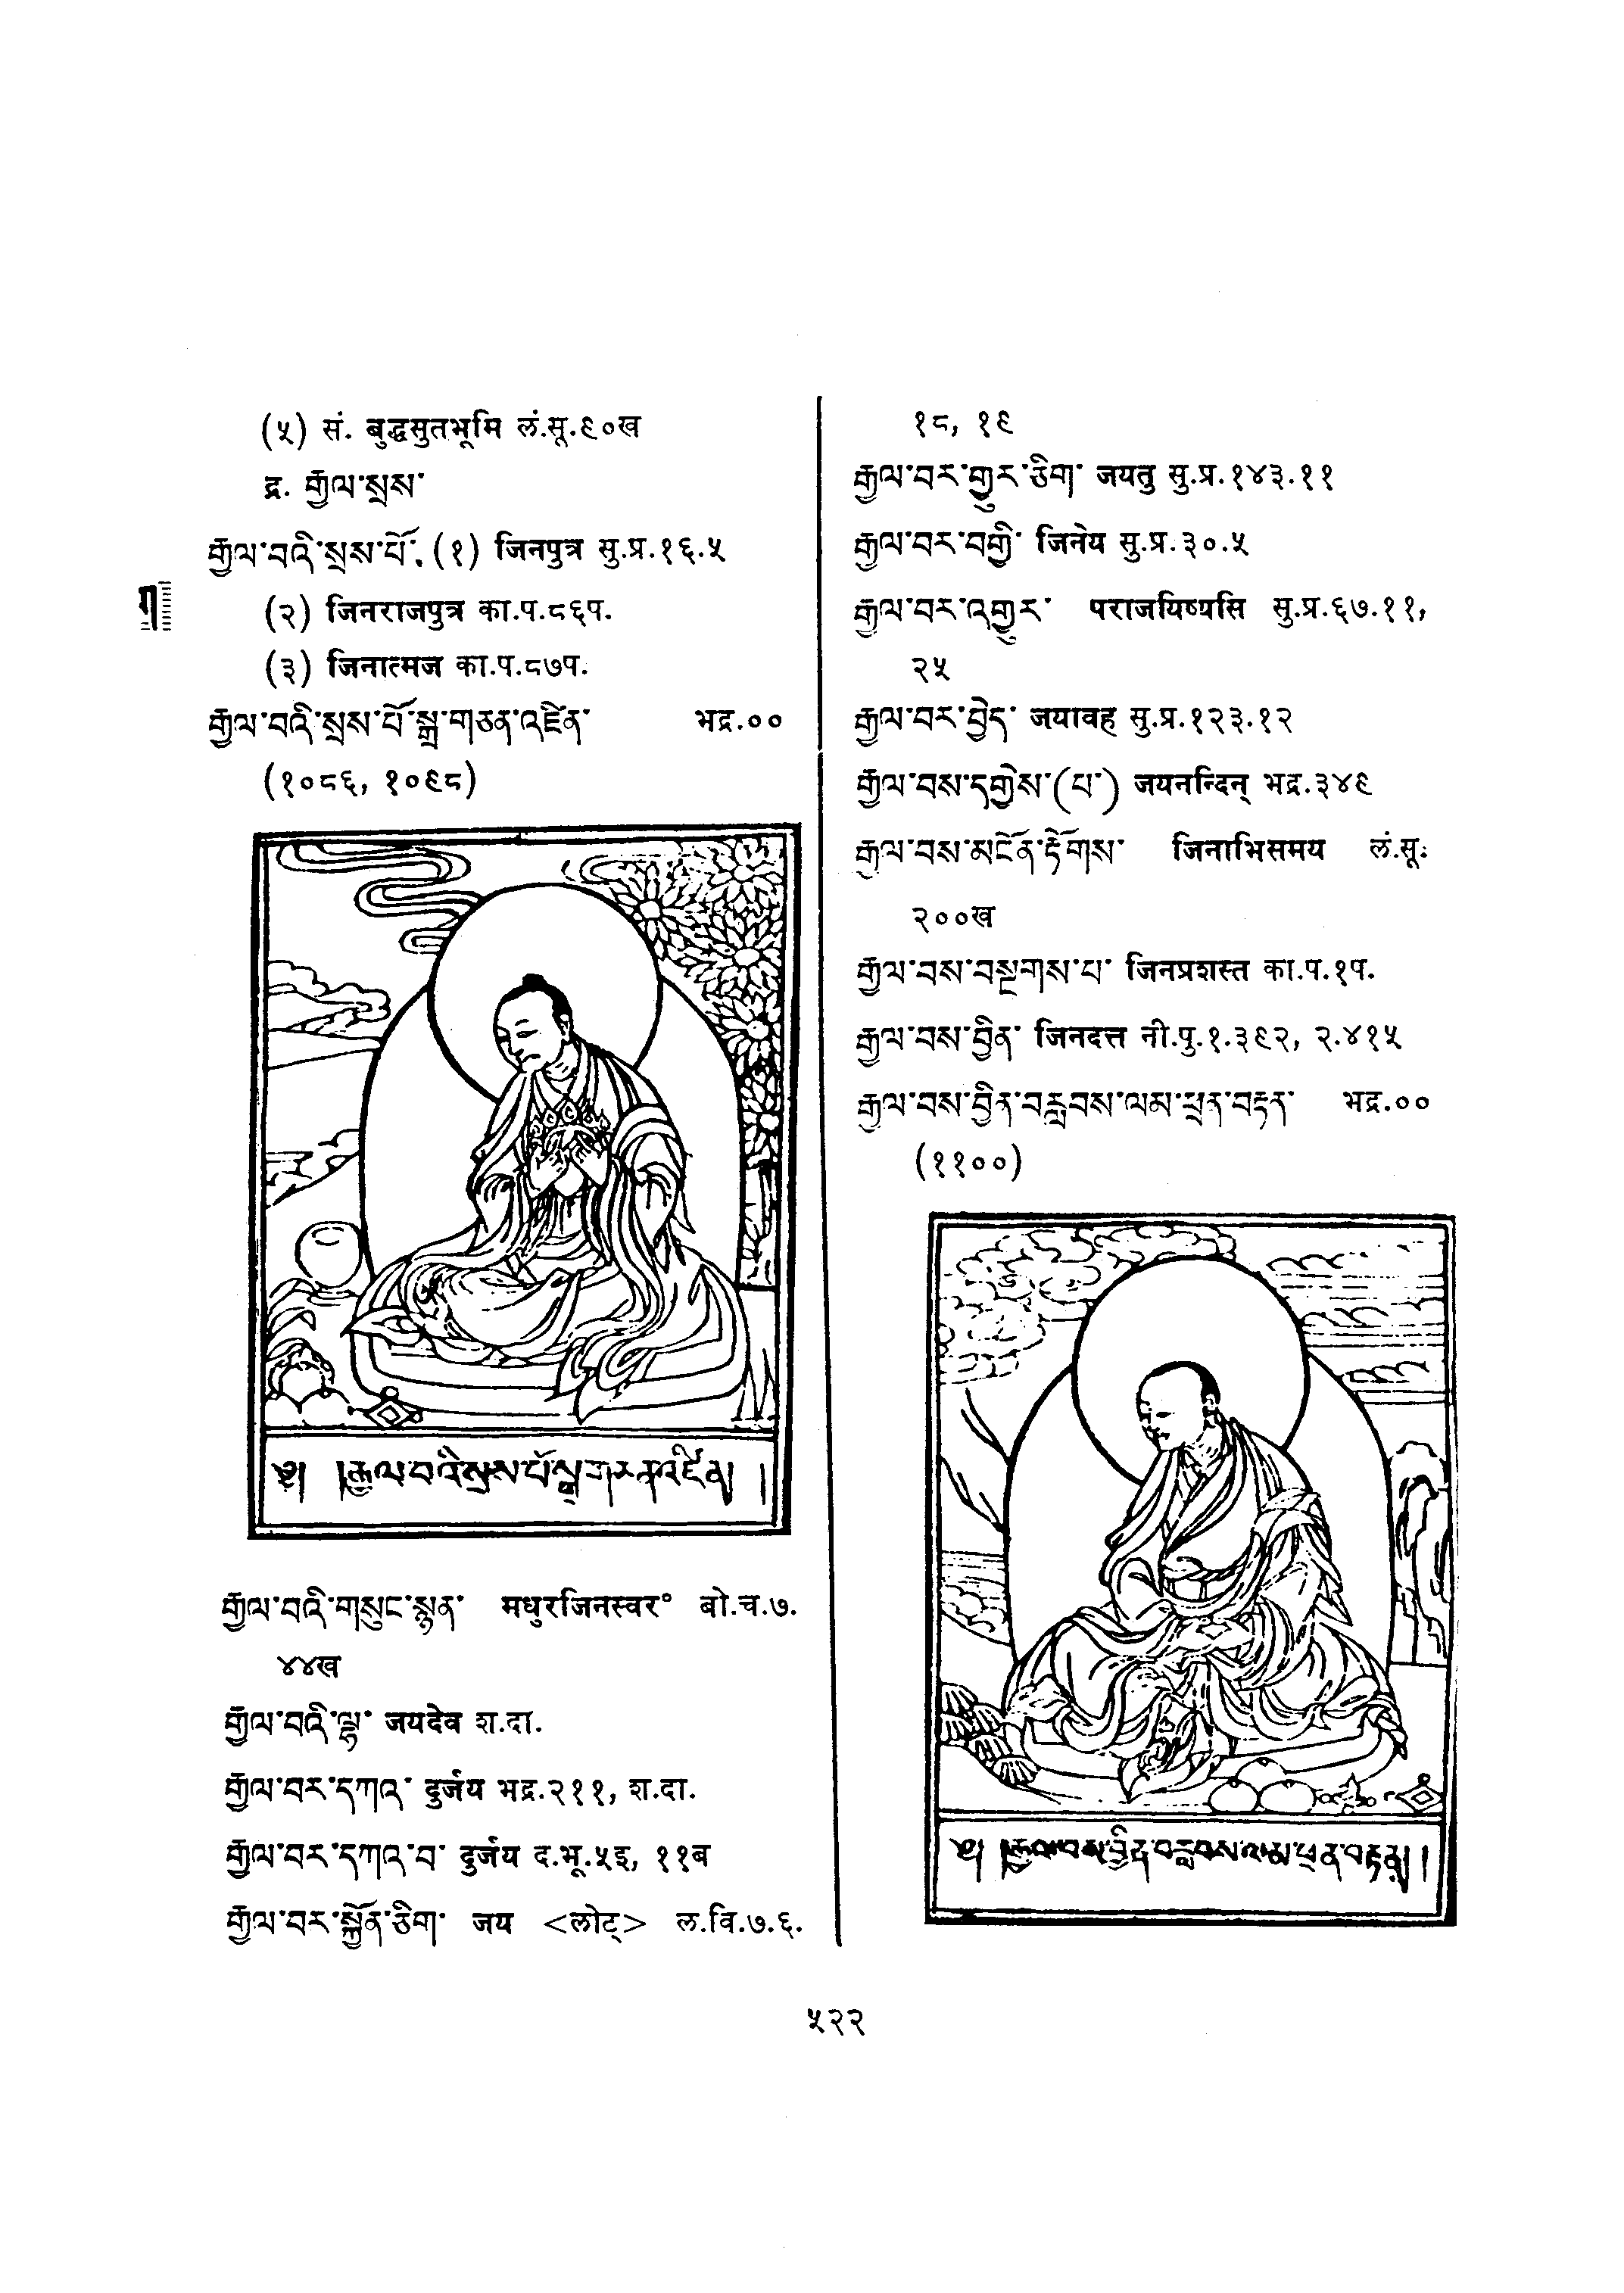 (५) सं. बुद्धसुतभूमि लं.सू.९०ख
द्र. རྒྱལ་སྲས་
རྒྱལ་བའི་སྲས་པོ་. (१) जिनपुत्र सु.प्र.१६.५
(२) जिनराजपुत्र का.प.८६प.
(३) जिनात्मज का.प.८७प.
རྒྱལ་བའི་སྲས་པོ་སྒྲ་གཅན་འཛིན་ भद्र.००
(१०८६, १०९८)
༄། །རྒྱལ་བའི་སྲས་པོ་སྒྲ་གཅན་འཛིན། །
རྒྱལ་བའི་གསུང་སྙན་ मधुरजिनस्वर॰ बो.च.७.
४४ख
རྒྱལ་བའི་ལྷ་ जयदेव श.दा.
རྒྱལ་བར་དཀའ་ दुर्जय भद्र.२११, श.दा.
རྒྱལ་བར་དཀའ་བ་ दुर्जय द.भू.५इ, ११ब
རྒྱལ་བར་སྐྱོན་ཅིག་ जय <लोट्> ल.वि.७.६.
१८, १९
རྒྱལ་བར་གྱུར་ཅིག་ जयतु सु.प्र.१४३.११
རྒྱལ་བར་བགྱི་ जिनेय सु.प्र.३०.५
རྒྱལ་བར་འགྱུར་ पराजयिष्यसि सु.प्र.६७.११,
२५
རྒྱལ་བར་བྱེད་ जयावह सु.प्र.१२३.१२
རྒྱལ་བས་དགྱེས་(པ་) जयनन्दिन् भद्र.३४९
རྒྱལ་བས་མངོན་རྟོགས་ जिनाभिसमय लं.सू.
२००ख
རྒྱལ་བས་བསྔགས་པ་ जिनप्रशस्त का.प.१प.
རྒྱལ་བས་བྱིན་ जिनदत्त नी.पु.१.३९२, २.४१५
རྒྱལ་བས་བྱིན་བརླབས་ལམ་ཕྲན་བརྟན་ भद्र.००
(११००)
༄། །རྒྱལ་བས་བྱིན་བརླབས་ལམ་ཕྲན་བརྟན། །
५२२